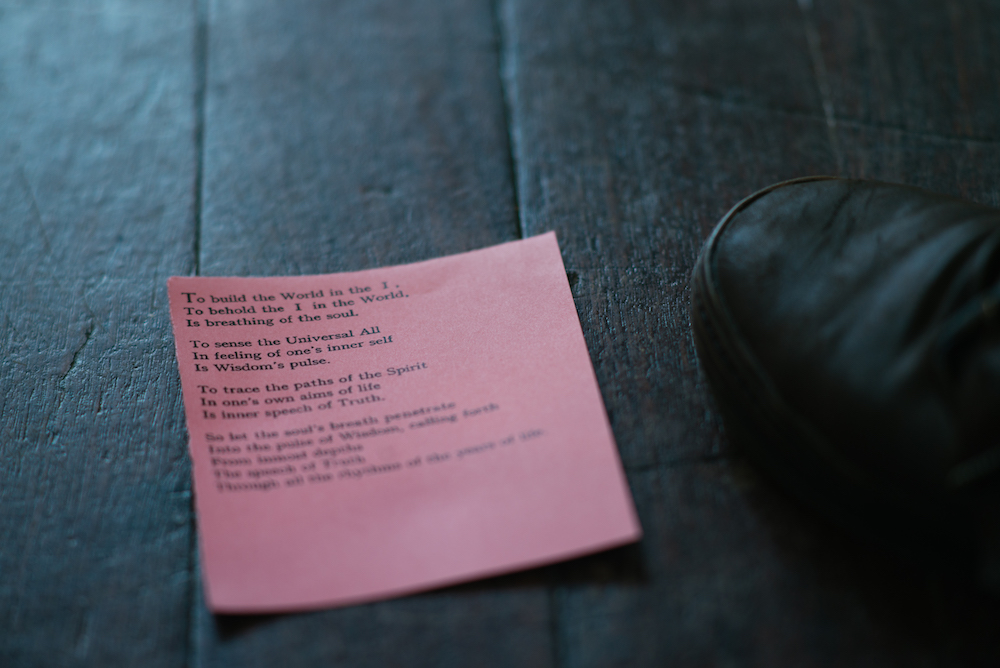 To build the World in the I ,
To behold the I in the World,
Is breathing of the soul.
To sense the Universal All
In feeling of one's inner self
Is Wisdom's pulse.
To trace the paths of the Spirit
In one's own aims of life
Is inner speech of Truth.
So let the soul's breath penetrate
Into the pulse of Wisdom, calling forth
From inmost depths
The speech of Truth
Through all the rhythms of the years of life.